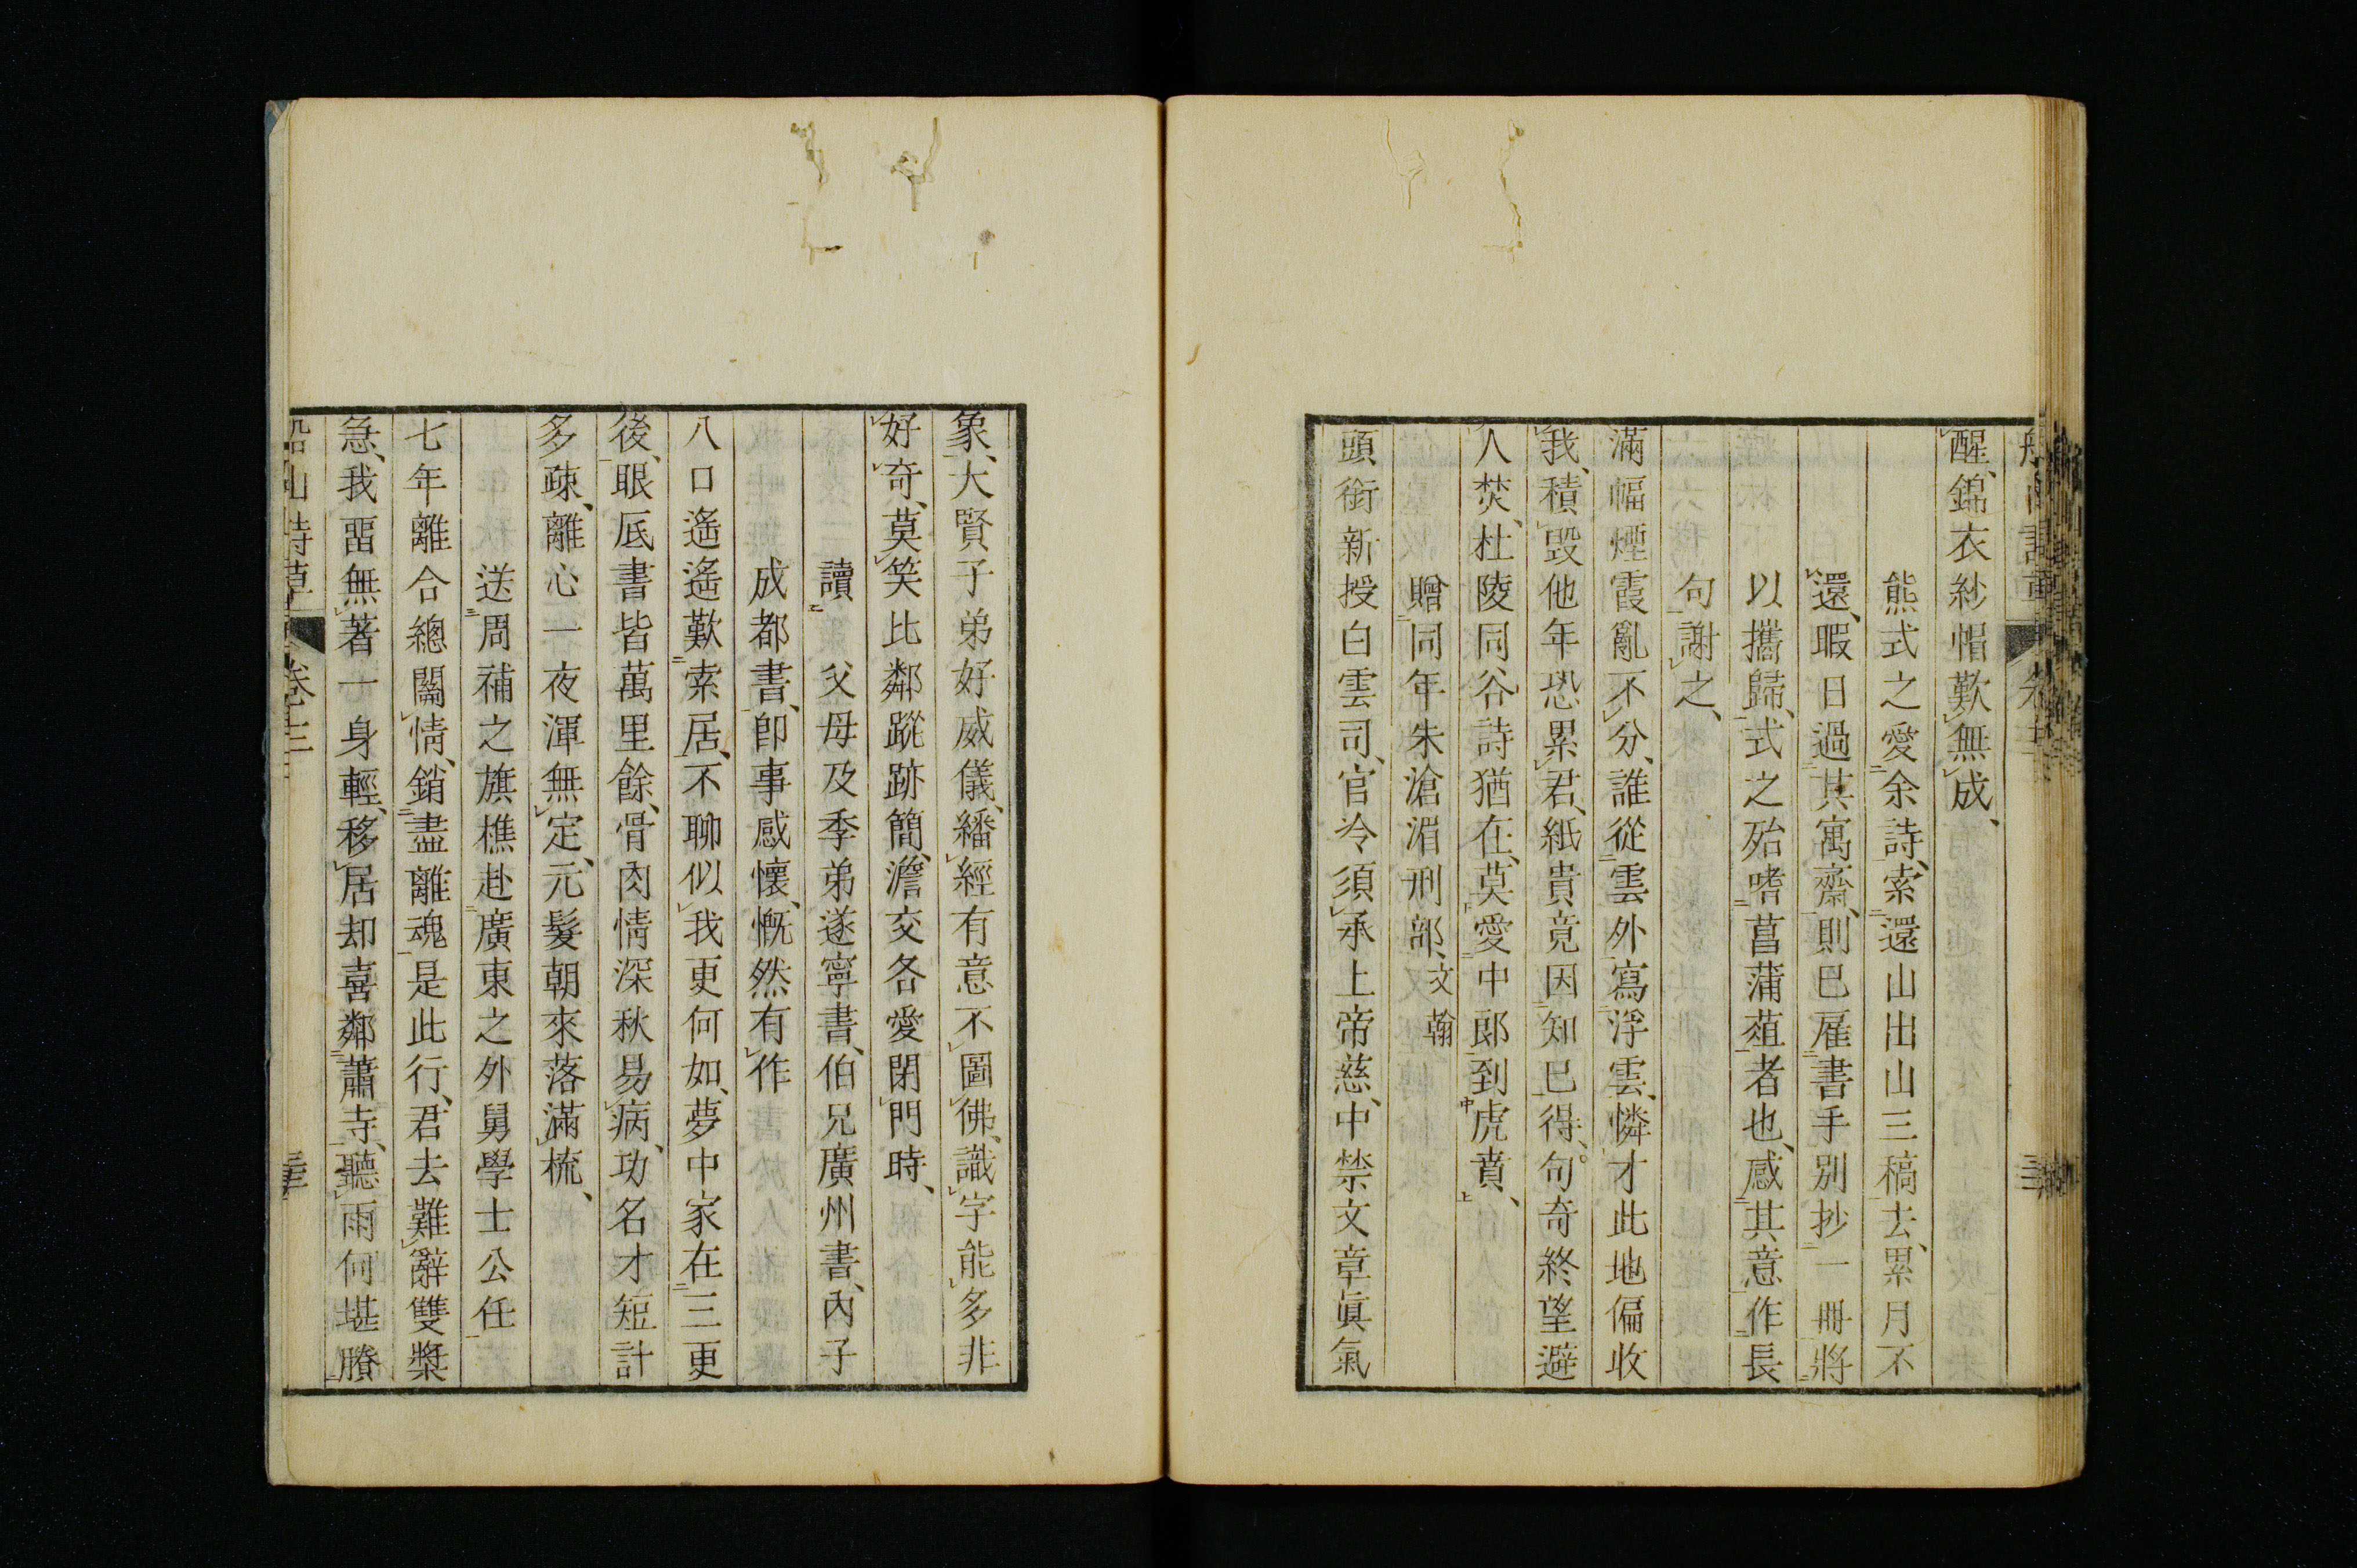 醒、錦衣紗帽歎無成、
熊式之愛余詩、索還山出山三稿去、累月不
還、暇日過其寓齋、則已雇書手別抄一冊將
以攜歸、式之殆嗜菖蒲葅者也、感其意作長
句謝之、
滿幅煙霞亂不分、誰從雲外寫浮雲、憐才此地偏收
我、積毀他年恐累君、紙貴竟因知已得、句奇終望避
人焚、杜陵同谷詩猶在、莫愛中郎到虎賁、
贈同年朱滄湄刑部、文翰
頭銜新授白雲司、官冷須承上帝慈、中禁文章眞氣
象、大賢子弟好威儀、繙經有意不圖佛、識字能多非
好奇、莫笑比鄰蹤跡簡、澹交各愛閉門時、
讀 父母及季弟遂寧書、伯兄廣州書、內子
成都書、卽事感懷、慨然有作
八口遙遙歎索居、不聊似我更何如、夢中家在三更
後、眼底書皆萬里餘、骨肉情深秋易病、功名才短計
多疎、離心一夜渾無定、元髮朝來落滿梳、
送周補之旗樵赴廣東之外舅學士公任
七年離合總關情、銷盡離魂是此行、君去難辭雙槳
急、我畱無著一身輕、移居却喜鄰蕭寺、聽雨何堪賸
船山詩草 卷十三